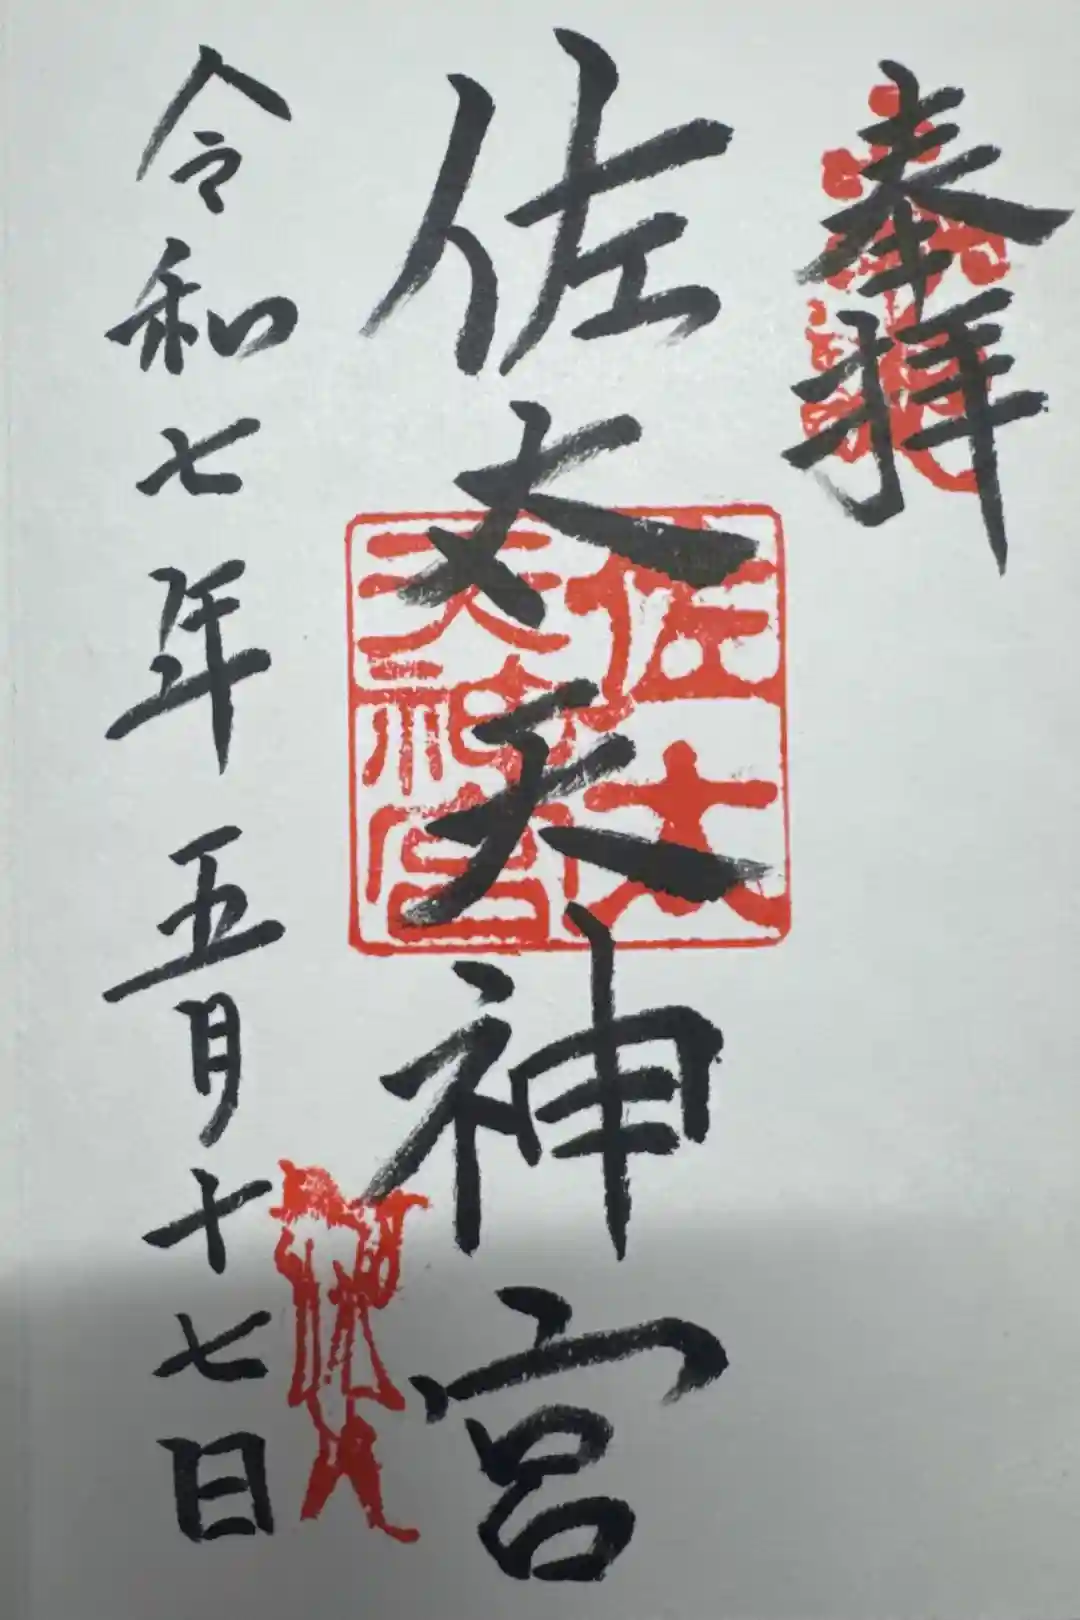 奉拝
佐太天神宮
佐太
天神宮
令和七年五月十七日